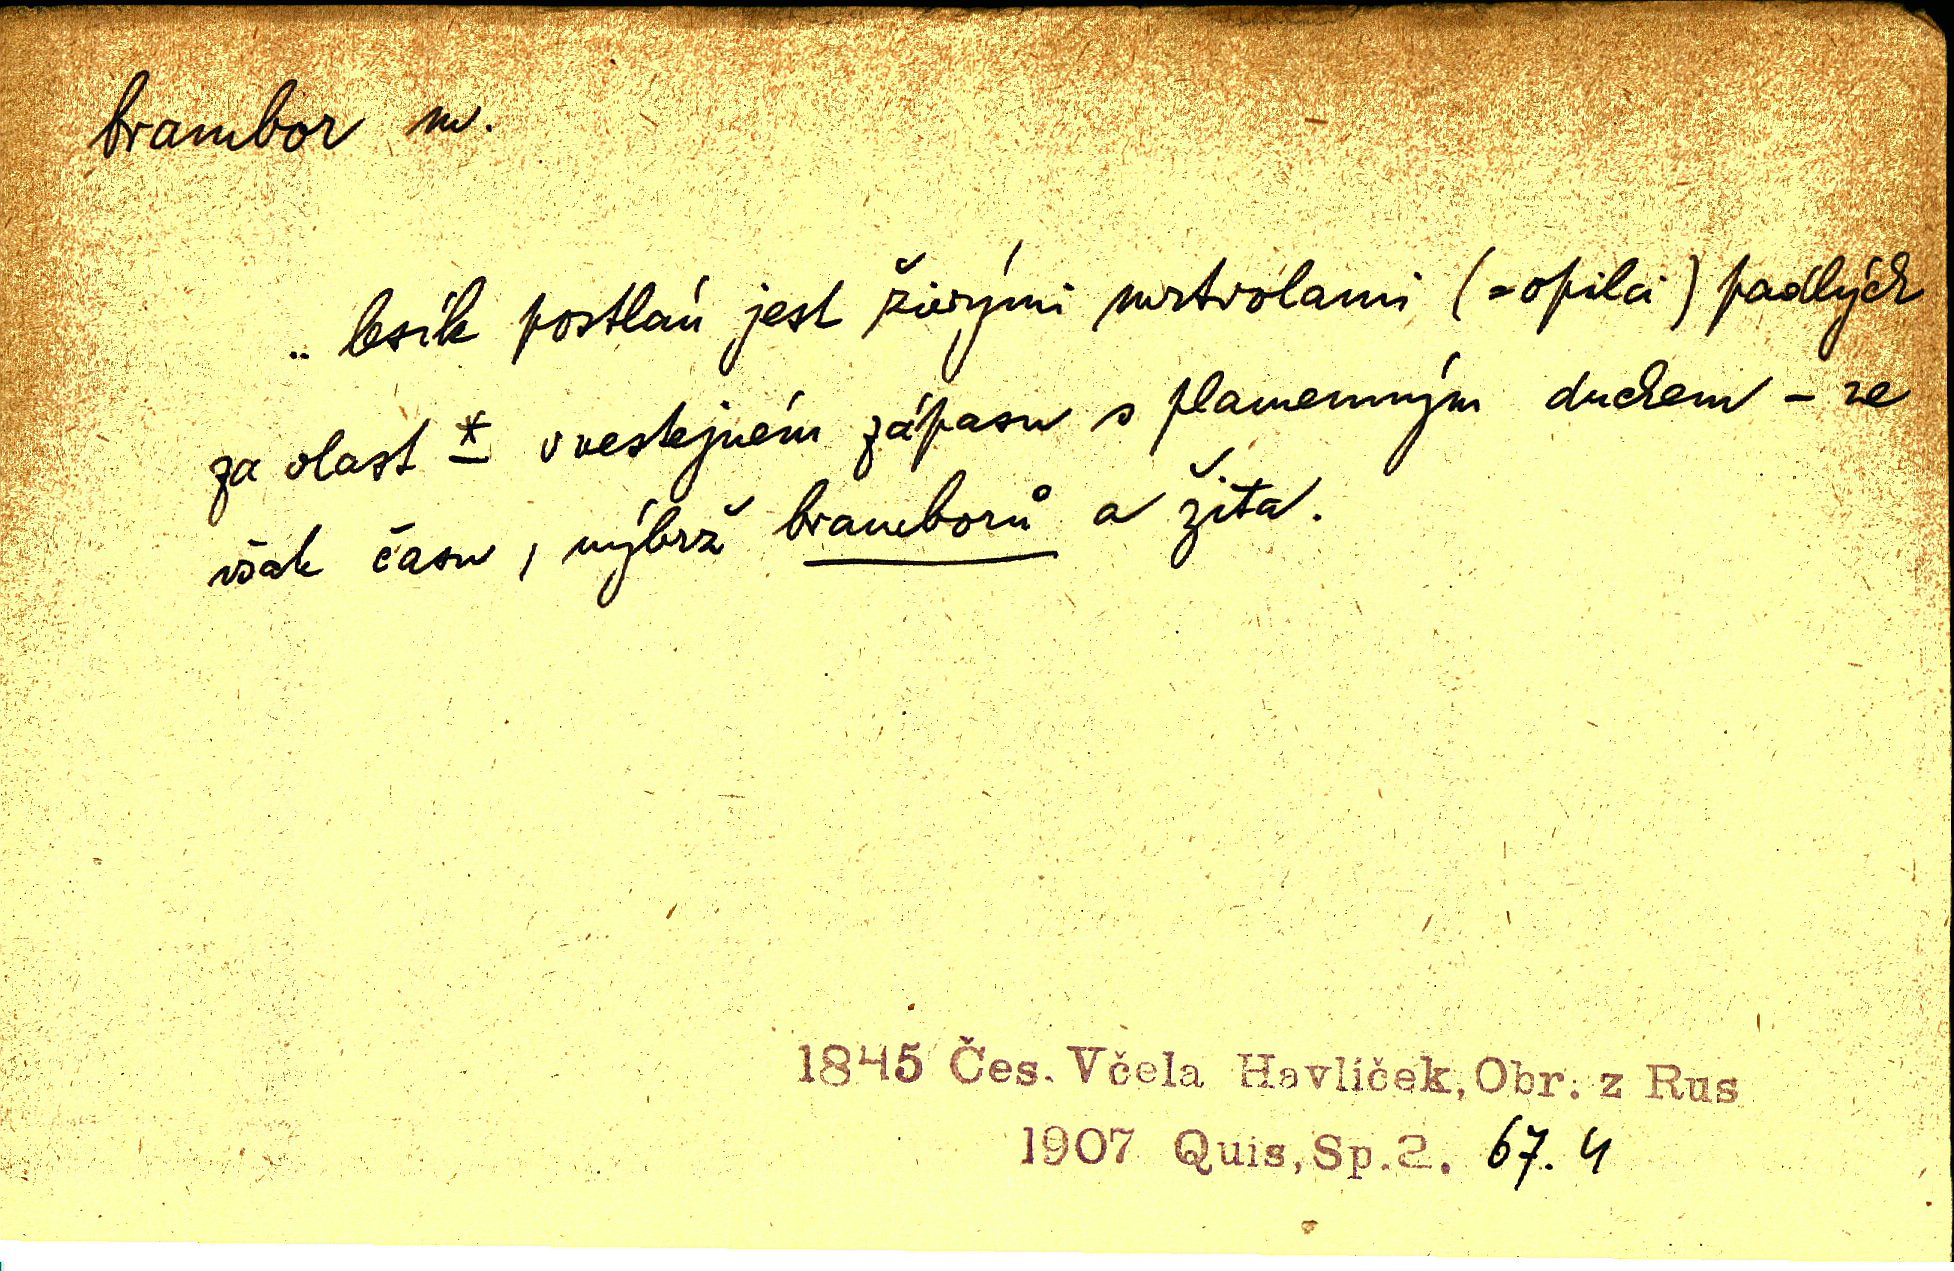 brambor m.
.. lesík postlán jest živými mrtvolami (=opilci) padlých
za vlast * v nestejném zápasu s plamenným duchem – ne
však času, nýbrž bramborů a žita.
1845 Čes. Včela Havlíček, Obr. z Rus
1907 Quis, Sp. 2. 67. 4